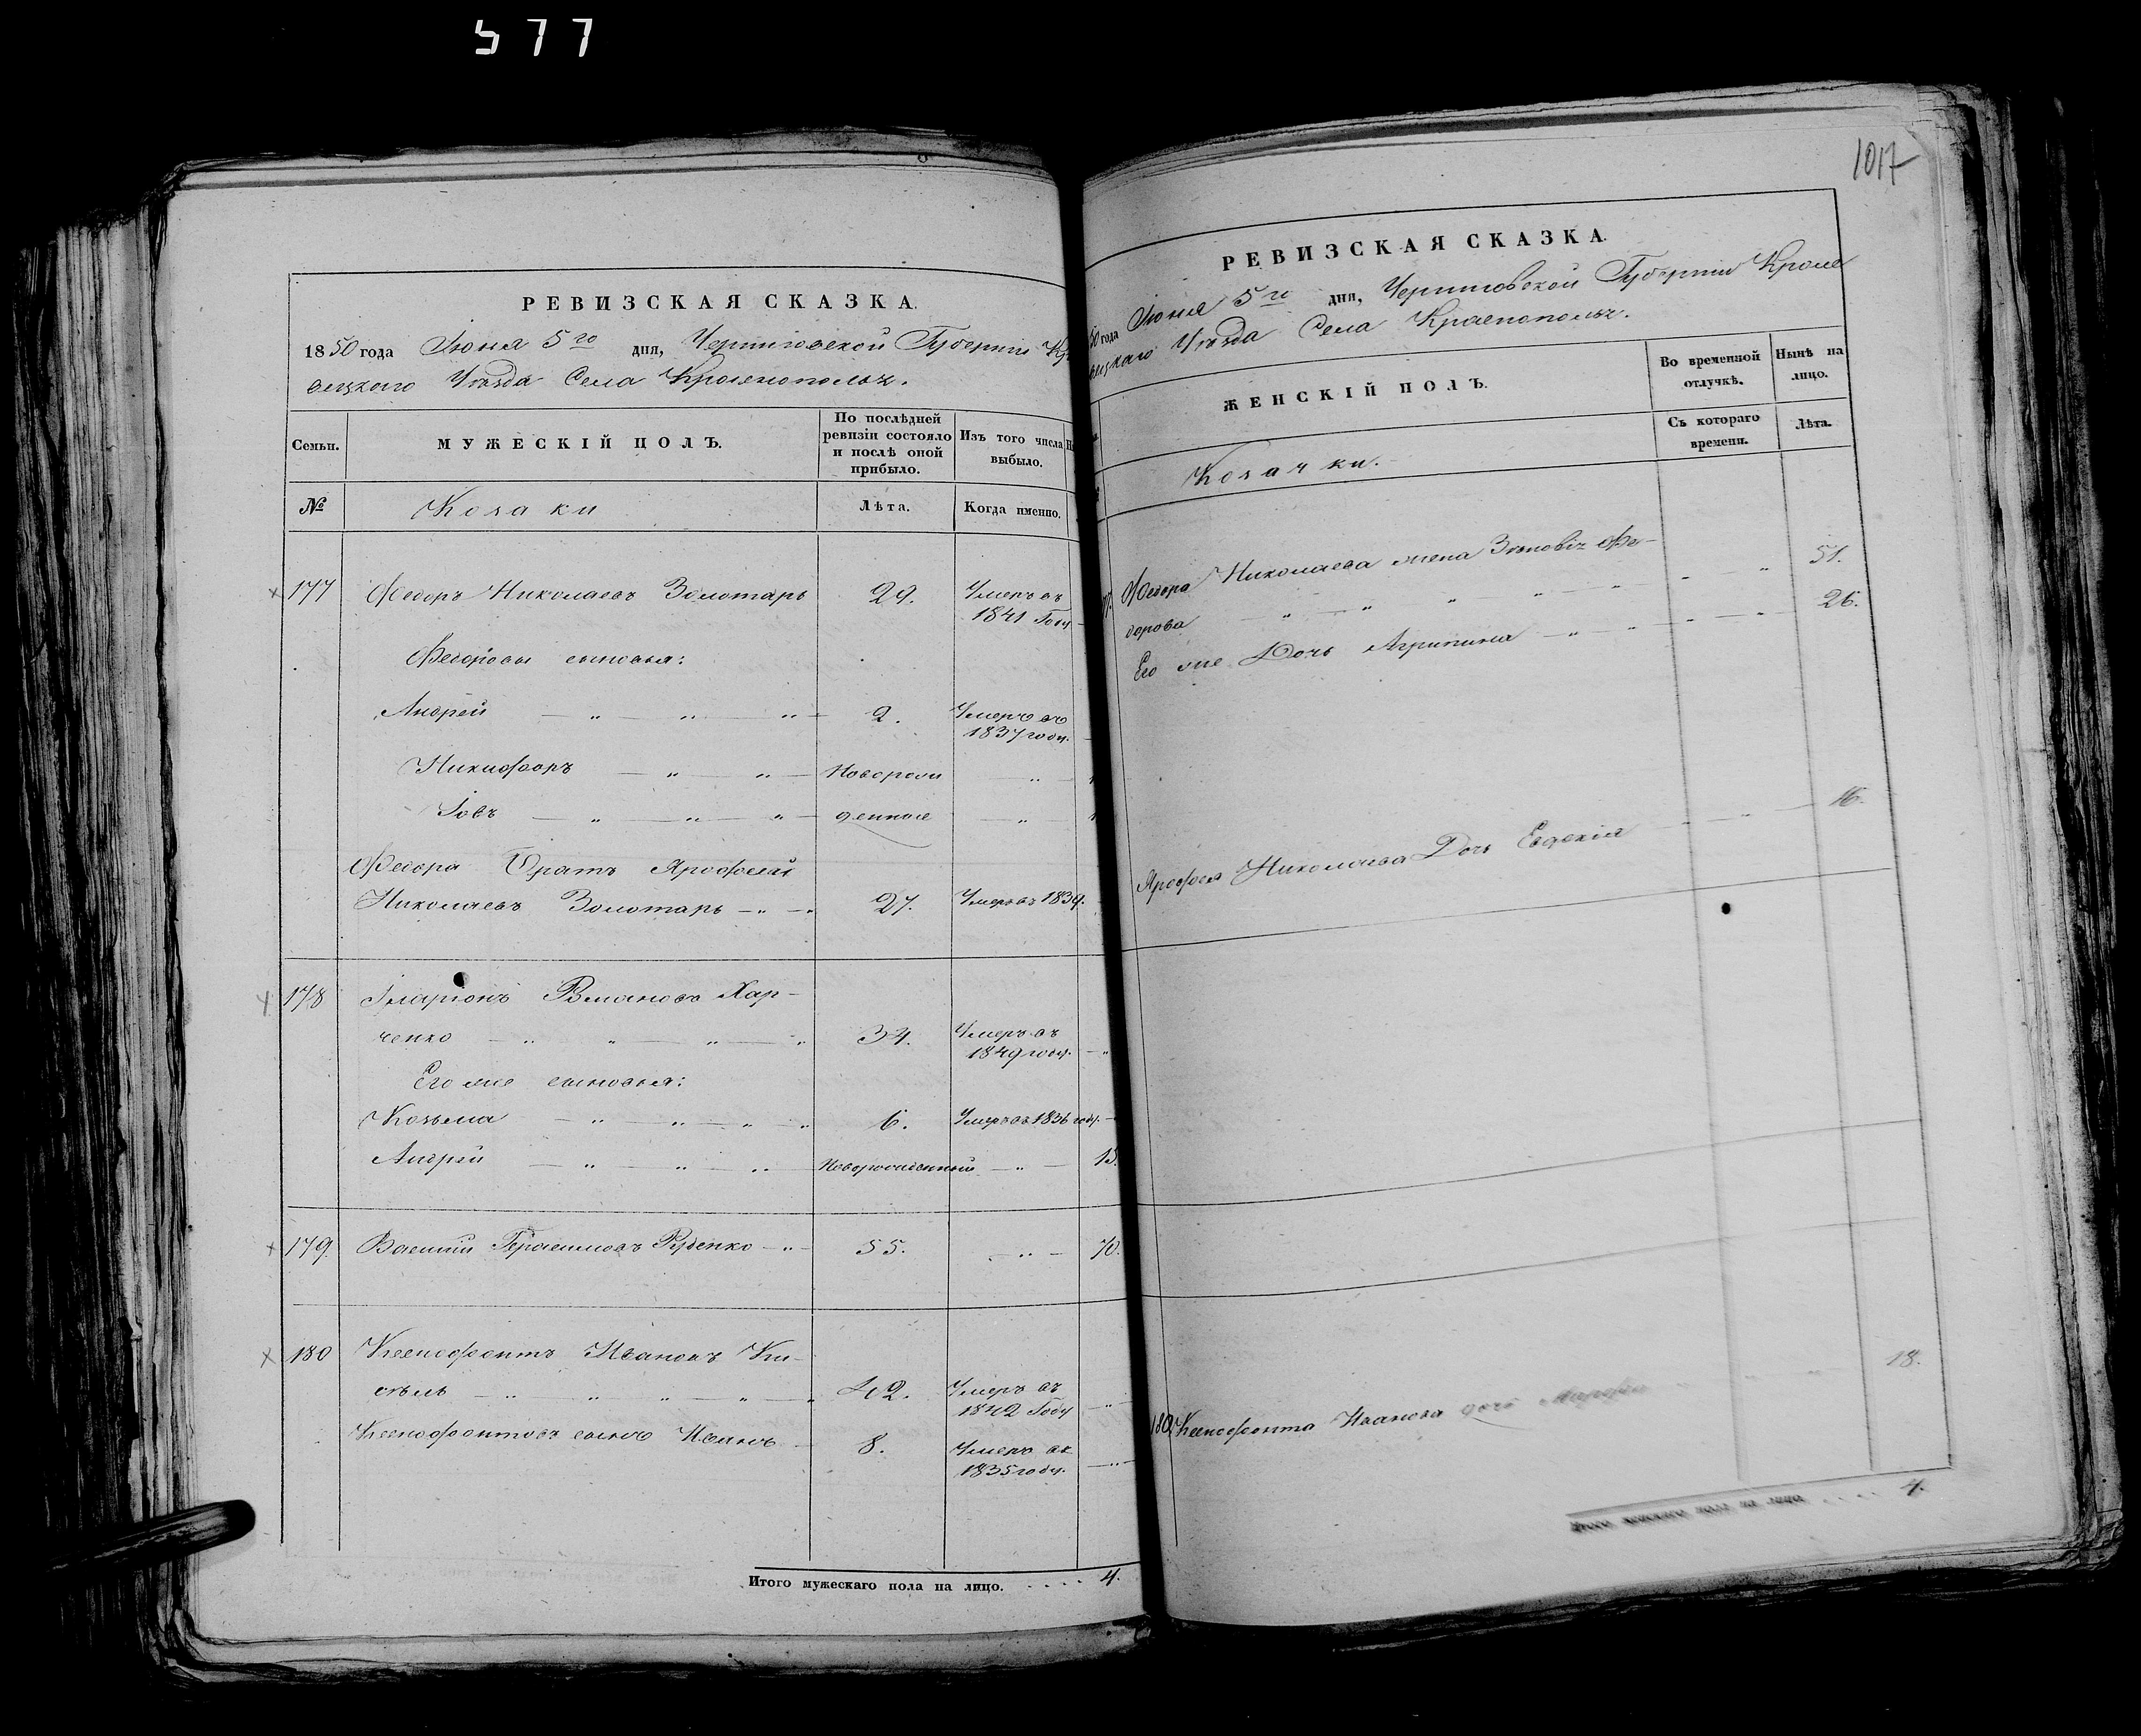 577
РЕВИЗСКАЯ СКАЗКА.
1850 года Іюня 5го дня, Черниговской Губерніи Кр
вецкаго Уѣзда Села Краснополья.
Семьи.
МУЖЕСКІЙ ПОЛЪ.
По послѣдней
ревизіи состояло
и послѣ оной
прибыло.
Изъ того числа
выбыло.
№
Козаки
Лѣта.
Когда именно.
177 Федоръ Николаевъ Золотарь 29. Умеръ въ
1841 Году
Федоровы сыновья:
Андрей — „ — „ — „ — 2. Умеръ въ
1837 году.
Никифоръ — „ — „ — Новорож — „ —
Іовъ — „ — „ — „ — денные — „ —
Федора Братъ Ярофей
Николаевъ Золотарь — „ — „ 27. Умеръ въ 1839.
178 Іларіонъ Романовъ Хар-
ченко — „ — „ — „ — „ 34. Умеръ въ
1849 году. — „
Его же сыновья:
Козьма — „ — „ — „ — „ 6. Умеръ въ 1836 году. —
Андрей — „ — „ — „ — Новорожденный — „ — 15.
179. Василій Герасимовъ Руденко — „ — 55. — „ — 70.
180 Ксенофонтъ Ивановъ Ки-
сѣль — „ — „ — „ — „ — 42. Умеръ въ
1842 Году — „
Ксенофонтовъ сынъ Иванъ — 8. Умеръ въ
1835 году. — „ —
Итого мужескаго пола на лицо. . . . . 4.
1017
РЕВИЗСКАЯ СКАЗКА.
50 года Іюня 5го дня, Черниговской Губерніи Кроле
вецкаго Уѣзда Села Краснополья.
ЖЕНСКІЙ ПОЛЪ.
Во временной
отлучкѣ.
Нынѣ на
лицо.
Съ котораго
времени.
Лѣта.
Козачки.
Федора Николаева жена Зѣновія Фе-
дорова — „ — „ — „ — „ — „ — „ 51.
Его же Дочь Агрипина — „ — „ — „ — „ 26.
Ярофея Николаева Дочь Евдокія — „ — 16.
180 Ксенофонта Иванова дочь Марфа „ „ „ 18.
Итого женскаго пола на лицо . . . . 4.